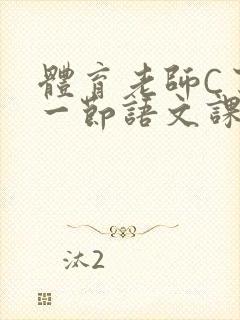 體育老師C
一節語文課
汰2